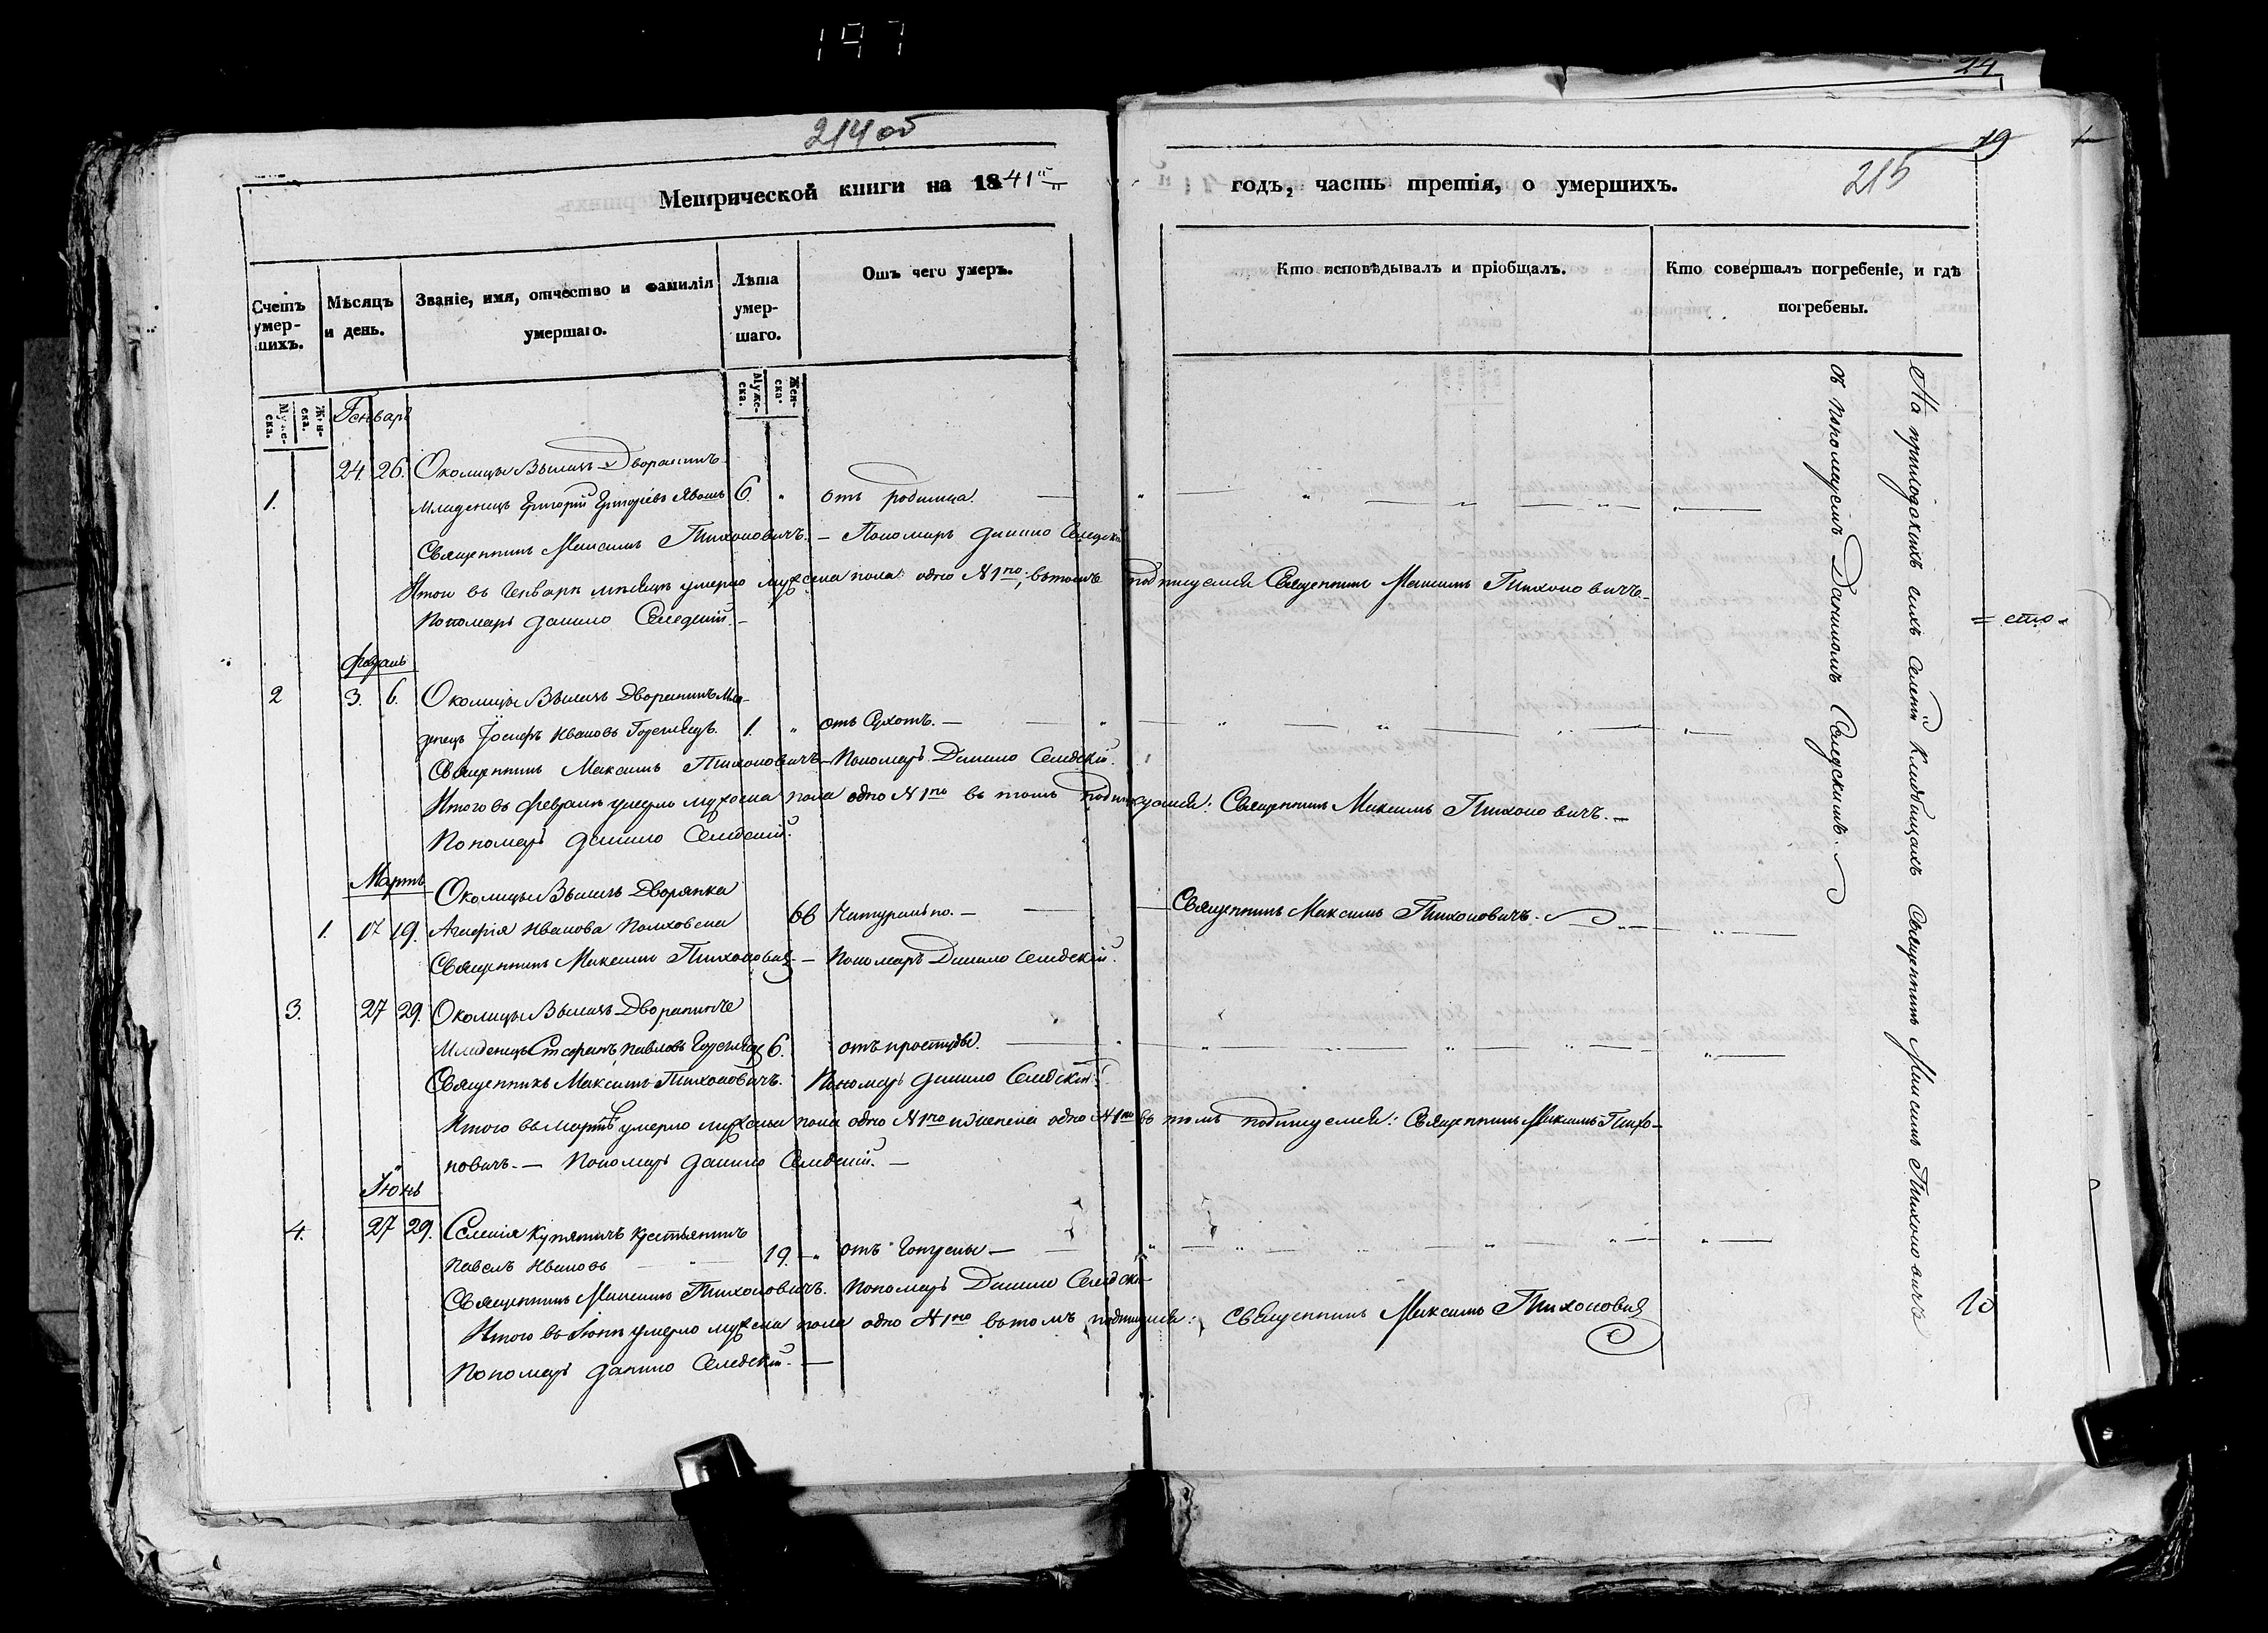 197
24
214 об
19
215
Метрической книги на 1841й
годъ, часть третія, о умершихъ.
Счетъ умер-шихъ.
Мѣсяцъ и день.
Званіе, имя, отчество и фамилія умершаго.
Лѣта умер-шаго.
Отъ чего умеръ.
Кто исповѣдывалъ и пріобщалъ.
Кто совершалъ погребеніе, и гдѣ погребены.
Муже-ска.
Жен-ска.
Муже-ска.
Жен-ска.
Генварь
24 26. Околицы Дворанинъ
1. младенецъ Григорій Григоріевъ 6. " отъ родимца.
Священникъ Максимъ Тихоновичъ. — Пономаръ Данило Селедскій
Итого въ Генварѣ мѣсяцѣ умерло мужеска пола одно №1го; въ томъ подписуемся Священникъ Максимъ Тихоновичъ.
Пономаръ Данило Селедскій.
Февраль
2 3. 6. Околицы Дворанинъ Мла-
денецъ Іосифъ Ивановъ 1. " отъ Сухотъ. —
Священникъ Максимъ Тихоновичъ — Пономаръ Данило Селедскій.
Итого въ Февралѣ умерло мужеска пола одно №1го въ томъ подписуемся: Священникъ Максимъ Тихоновичъ. —
Пономаръ Данило Селедскій.
Мартъ
Околицы Дворянка
1. 17 19. Ивановна 66 Натурално. — Священникъ Максимъ Тихоновичъ.
Священникъ Максимъ Тихоновичъ — Пономаръ Данило Селедскій.
3. 27 29. Околицы Дворанинъ
Младенецъ Павловъ 6. отъ простуды.
Священникъ Максимъ Тихоновичъ. Пономаръ Данило Селедскій.
Итого въ Мартѣ умерло мужеска пола одно №1го и женска одно №1го въ томъ подписуемся: Священникъ Максимъ Тихо-
новичъ. — Пономаръ Данило Селедскій. —
Іюнь
4. 27 29. Селенія Крестьянинъ
Павелъ Ивановъ 19. — " отъ —
Священникъ Максимъ Тихоновичъ. Пономаръ Данило Селедскій
Итого въ Іюнѣ умерло мужеска пола одно №1го въ томъ подписуемся: Священникъ Максимъ Тихоновичъ
Пономаръ Данило Селедскій. —
На приходскихъ сихъ селеній кладбищахъ Священникъ Максимъ Тихоновичъ
съ пономаремъ Даниломъ Селедскимъ.
= сто =
10